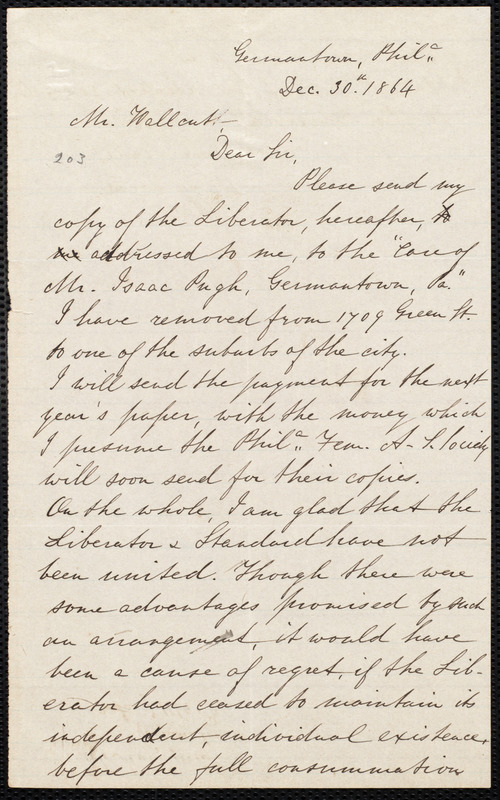 Germantown, Phila.
Dec. 30th. 1864
Mr. Wallcut,
203
Dear Sir,
Please send my
copy of the Liberator, hereafter, to
me addressed to me, to the "Care of
Mr. Isaac Pugh, Germantown, Pa."
I have removed from 1709 Green St.
to one of the suburbs of the city.
I will send the payment for the next
year's paper, with the money which
I presume the Phila. Fem. A-S. Society
will soon send for their copies.
On the whole, I am glad that the
Liberator & Standard have not
been united. Though there were
some advantages promised by such
an arrangement, it would have
been a cause of regret, if the Lib-
erator had ceased to maintain its
independent, individual existence,
before the full consummation